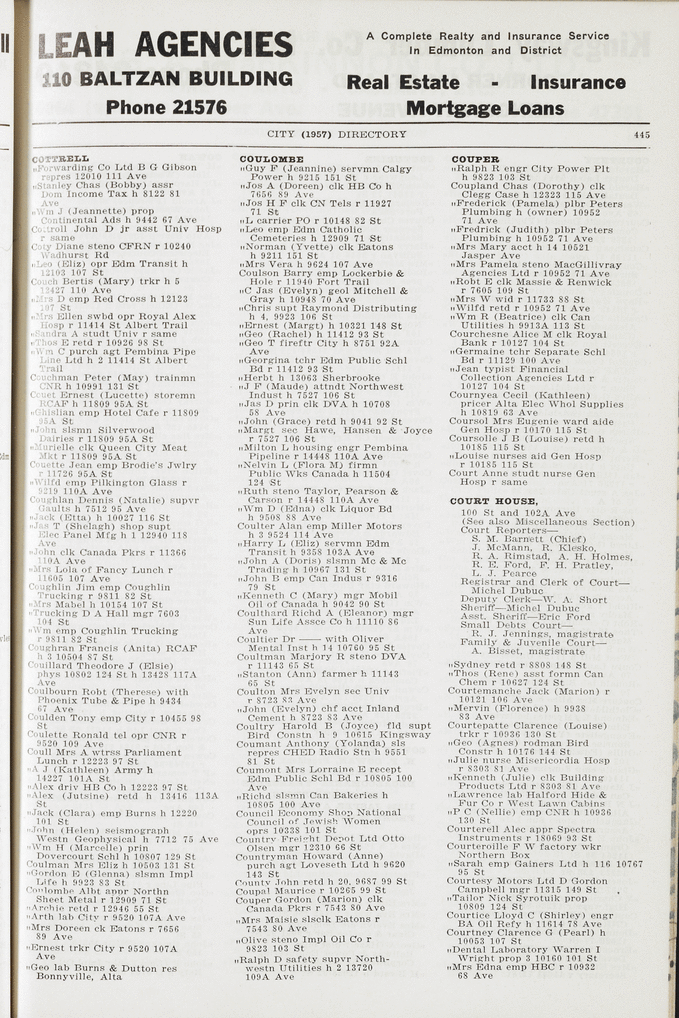 LEAH AGENCIES
110 BALTZAN BUILDING
Phone 21576
A Complete Realty and Insurance Service
In Edmonton and District
Real Estate - Insurance
Mortgage Loans
CITY (1957) DIRECTORY
445
COTTRELL
"Forwarding Co Ltd B G Gibson
repres 12010 111 Ave
"Stanley Chas (Bobby) assr
Dom Income Tax h 8122 81
Ave
"Wm J (Jeannette) prop
Continental Ads h 9442 67 Ave
Cottroll John D jr asst Univ Hosp
r same
Coty Diane steno CFRN r 10240
Wadhurst Rd
"Leo (Eliz) opr Edm Transit h
12103 107 St
Couch Bertis (Mary) trkr h 5
12427 110 Ave
"Mrs D emp Red Cross h 12123
107 St
"Mrs Ellen swbd opr Royal Alex
Hosp r 11414 St Albert Trail
"Sandra A studt Univ r same
"Thos E retd r 10926 98 St
"Wm C purch agt Pembina Pipe
Line Ltd h 2 11414 St Albert
Trail
Couchman Peter (May) trainmn
CNR h 10991 131 St
Couet Ernest (Lucette) storemn
RCAF h 11809 95A St
"Ghislian emp Hotel Cafe r 11809
95A St
"John slsmn Silverwood
Dairies r 11809 95A St
"Murielle clk Queen City Meat
Mkt r 11809 95A St
Couette Jean emp Brodie's Jwlry
r 11726 95A St
"Wilfd emp Pilkington Glass r
9219 110A Ave
Coughlan Dennis (Natalie) supvr
Gaults h 7512 95 Ave
"Jack (Etta) h 10027 116 St
"Jas T (Shelagh) shop supt
Elec Panel Mfg h 1 12940 118
Ave
"John clk Canada Pkrs r 11366
110A Ave
"Mrs Lola of Fancy Lunch r
11605 107 Ave
Coughlin Jim emp Coughlin
Trucking r 9811 82 St
"Mrs Mabel h 10154 107 St
"Trucking D A Hall mgr 7603
104 St
"Wm emp Coughlin Trucking
r 9811 82 St
Coughran Francis (Anita) RCAF
h 3 10504 87 St
Couillard Theodore J (Elsie)
phys 10802 124 St h 13428 117A
Ave
Coulbourn Robt (Therese) with
Phoenix Tube & Pipe h 9434
67 Ave
Coulden Tony emp City r 10455 98
St
Coulette Ronald tel opr CNR r
9520 109 Ave
Coull Mrs A wtrss Parliament
Lunch r 12223 97 St
"A J (Kathleen) Army h
14227 101A St
"Alex driv HB Co h 12223 97 St
"Alex (Jutsine) retd h 13416 113A
St
"Jack (Clara) emp Burns h 12220
101 St
"John (Helen) seismograph
Westn Geophysical h 7712 75 Ave
"Wm H (Marcelle) prin
Dovercourt Schl h 10807 129 St
Coulman Mrs Eliz h 10503 131 St
"Gordon E (Glenna) slsmn Impl
Life h 9923 83 St
Coulombe Albt appr Northn
Sheet Metal r 12909 71 St
"Archie retd r 12946 55 St
"Arth lab City r 9520 107A Ave
"Mrs Doreen ck Eatons r 7656
89 Ave
"Ernest trkr City r 9520 107A
Ave
"Geo lab Burns & Dutton res
Bonnyville, Alta
COULOMBE
"Guy F (Jeannine) servmn Calgy
Power h 9215 151 St
"Jos A (Doreen) clk HB Co h
7656 89 Ave
"Jos H F clk CN Tels r 11927
71 St
"L carrier PO r 10148 82 St
"Leo emp Edm Catholic
Cemeteries h 12909 71 St
"Norman (Yvette) clk Eatons
h 9211 151 St
"Mrs Vera h 9624 107 Ave
Coulson Barry emp Lockerbie &
Hole r 11940 Fort Trail
"C Jas (Evelyn) geol Mitchell &
Gray h 10948 70 Ave
"Chris supt Raymond Distributing
h 4, 9923 106 St
"Ernest (Margt) h 10321 148 St
"Geo (Rachel) h 11412 93 St
"Geo T fireftr City h 8751 92A
Ave
"Georgina tchr Edm Public Schl
Bd r 11412 93 St
"Herbt h 13063 Sherbrooke
"J F (Maude) attndt Northwest
Indust h 7527 106 St
"Jas D prin clk DVA h 10708
58 Ave
"John (Grace) retd h 9041 92 St
"Margt sec Hawe, Hansen & Joyce
r 7527 106 St
"Milton L housing engr Pembina
Pipeline r 14448 110A Ave
"Nelvin L (Flora M) firmn
Public Wks Canada h 11504
124 St
"Ruth steno Taylor, Pearson &
Carson r 14448 110A Ave
"Wm D (Edna) clk Liquor Bd
h 9508 88 Ave
Coulter Alan emp Miller Motors
h 3 9524 114 Ave
"Harry L (Eliz) servmn Edm
Transit h 9358 103A Ave
"John A (Doris) slsmn Mc & Mc
Trading h 10967 131 St
"John B emp Can Indus r 9316
79 St
"Kenneth C (Mary) mgr Mobil
Oil of Canada h 9042 90 St
Coulthard Richd A (Eleanor) mgr
Sun Life Assce Co h 11110 86
Ave
Coultier Dr —— with Oliver
Mental Inst h 14 10760 95 St
Coultman Marjory R steno DVA
r 11143 65 St
"Stanton (Ann) farmer h 11143
65 St
Coulton Mrs Evelyn sec Univ
r 8723 83 Ave
"John (Evelyn) chf acct Inland
Cement h 8723 83 Ave
Coultry Harold B (Joyce) fld supt
Bird Constn h 9 10615 Kingsway
Coumant Anthony (Yolanda) sls
repres CHED Radio Stn h 9551
81 St
Coumont Mrs Lorraine E recept
Edm Public Schl Bd r 10805 100
Ave
"Richd slsmn Can Bakeries h
10805 100 Ave
Council Economy Shop National
Council of Jewish Women
oprs 10338 101 St
Country Freight Depot Ltd Otto
Olsen mgr 12310 66 St
Countryman Howard (Anne)
purch agt Loveseth Ltd h 9620
143 St
County John retd h 20, 9687 99 St
Coupal Maurice r 10265 99 St
Couper Gordon (Marion) clk
Canada Pkrs r 7543 80 Ave
"Mrs Maisie slsclk Eatons r
7543 80 Ave
"Olive steno Impl Oil Co r
9823 103 St
"Ralph D safety supvr North-
westn Utilities h 2 13720
109A Ave
COUPER
"Ralph R engr City Power Plt
h 9823 103 St
Coupland Chas (Dorothy) clk
Clegg Case h 12323 115 Ave
"Frederick (Pamela) plbr Peters
Plumbing h (owner) 10952
71 Ave
"Fredrick (Judith) plbr Peters
Plumbing h 10952 71 Ave
"Mrs Mary acct h 14 10521
Jasper Ave
"Mrs Pamela steno MacGillivray
Agencies Ltd r 10952 71 Ave
"Robt E clk Massie & Renwick
r 7605 109 St
"Mrs W wid r 11733 88 St
"Wilfd retd r 10952 71 Ave
"Wm R (Beatrice) clk Can
Utilities h 9913A 113 St
Courchesne Alice M clk Royal
Bank r 10127 104 St
"Germaine tchr Separate Schl
Bd r 11129 100 Ave
"Jean typist Financial
Collection Agencies Ltd r
10127 104 St
Cournyea Cecil (Kathleen)
pricer Alta Elec Whol Supplies
h 10819 63 Ave
Coursol Mrs Eugenie ward aide
Gen Hosp r 10170 115 St
Coursolle J B (Louise) retd h
10185 115 St
"Louise nurses aid Gen Hosp
r 10185 115 St
Court Anne studt nurse Gen
Hosp r same
COURT HOUSE,
100 St and 102A Ave
(See also Miscellaneous Section)
Court Reporters—
S. M. Barnett (Chief)
J. McMann, R. Klesko,
R. A. Rimstad, A. H. Holmes,
R. E. Ford, F. H. Pratley,
L. J. Pearce
Registrar and Clerk of Court—
Michel Dubuc
Deputy Clerk—W. A. Short
Sheriff—Michel Dubuc
Asst. Sheriff—Eric Ford
Small Debts Court—
R. J. Jennings, magistrate
Family & Juvenile Court—
A. Bisset, magistrate
"Sydney retd r 8808 148 St
"Thos (Rene) asst formn Can
Chem r 10627 124 St
Courtemanche Jack (Marion) r
10121 106 Ave
"Mervin (Florence) h 9938
83 Ave
Courtepatte Clarence (Louise)
trkr r 10936 130 St
"Geo (Agnes) rodman Bird
Constr h 10176 144 St
"Julie nurse Misericordia Hosp
r 8303 81 Ave
"Kenneth (Julie) clk Building
Products Ltd r 8303 81 Ave
"Lawrence lab Halford Hide &
Fur Co r West Lawn Cabins
"P C (Nellie) emp CNR h 10936
130 St
Courterell Alec appr Spectra
Instruments r 18069 93 St
Courteroille F W factory wkr
Northern Box
"Sarah emp Gainers Ltd h 116 10767
95 St
Courtesy Motors Ltd D Gordon
Campbell mgr 11315 149 St
"Tailor Nick Syrotuik prop
10809 124 St
Courtice Lloyd C (Shirley) engr
BA Oil Refy h 11614 78 Ave
Courtney Clarence G (Pearl) h
10053 107 St
"Dental Laboratory Warren I
Wright prop 3 10160 101 St
"Mrs Edna emp HBC r 10932
68 Ave